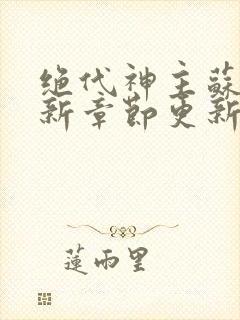 绝代神主蘇
新章節更新
蓮雨里